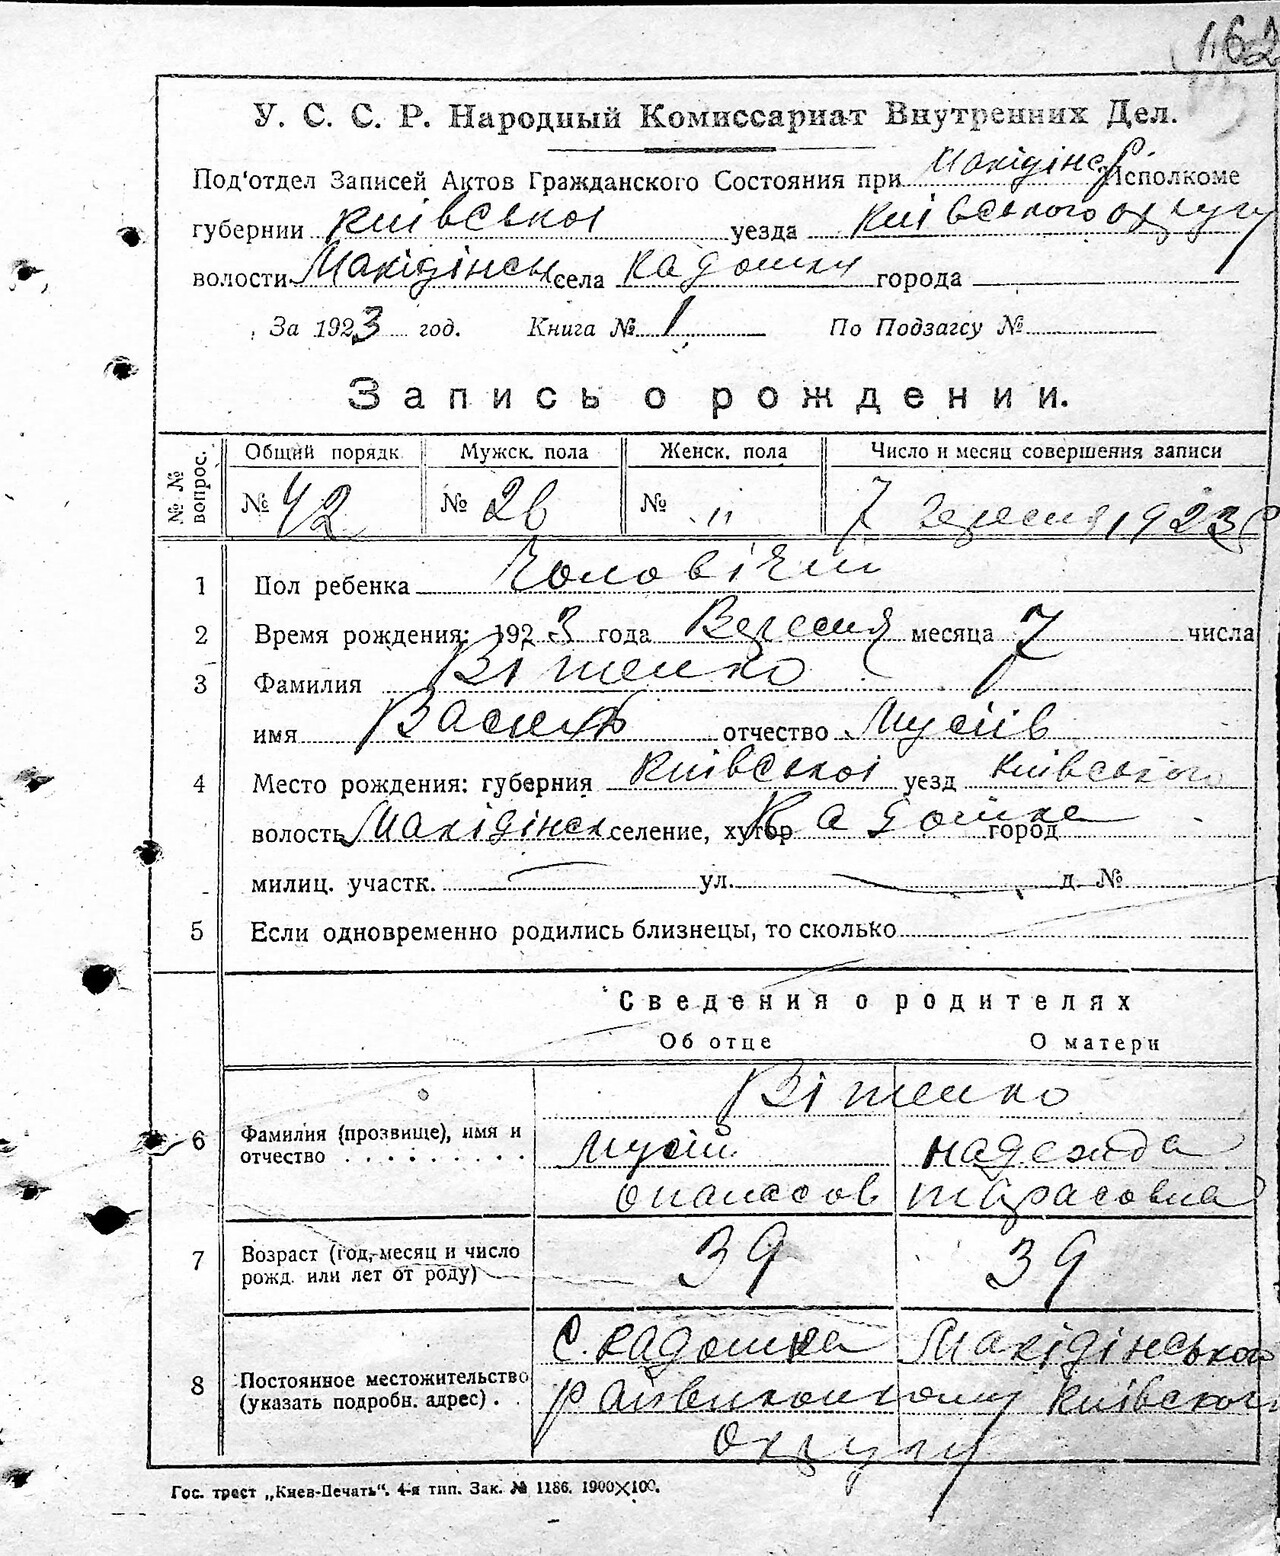 162
У. С. С. Р. Народный Комиссариат Внутренних Дел.
Под'отдел Записей Актов Гражданского Состояния при Макідінск. Исполкоме
губернии Київської уезда Київського округу
волости Макідінськ села Кадомка города
За 1923 год. Книга № 1 По Подзагсу №
Запись о рождении.
№ № вопрос. Общий порядк. Мужск. пола Женск. пола Число и месяц совершения записи
№ 42 № 26 № " 7 Вересня 1923 р
1 Пол ребенка Чоловічий
2 Время рождения: 1923 года Вересня месяца 7 числа
3 Фамилия Вітенко
имя Василь отчество Мусіїв
4 Место рождения: губерния Київської уезд Київського
волость Макідінск селение, хутор Кадомка город
милиц. участк. ул. д. №
5 Если одновременно родились близнецы, то сколько
Сведения о родителях
Об отце О матери
Вітенко
6 Фамилия (прозвище), имя и отчество Мусій Надежда
Опанасов Тарасовна
7 Возраст (год, месяц и число рожд. или лет от роду) 39 39
С. Кадомка Макідінського
8 Постоянное местожительство (указать подробн. адрес) Райвиконкому Київского
Округу
Гос. трест „Киев-Печать“. 4-я тип. Зак. № 1186. 1900×100.